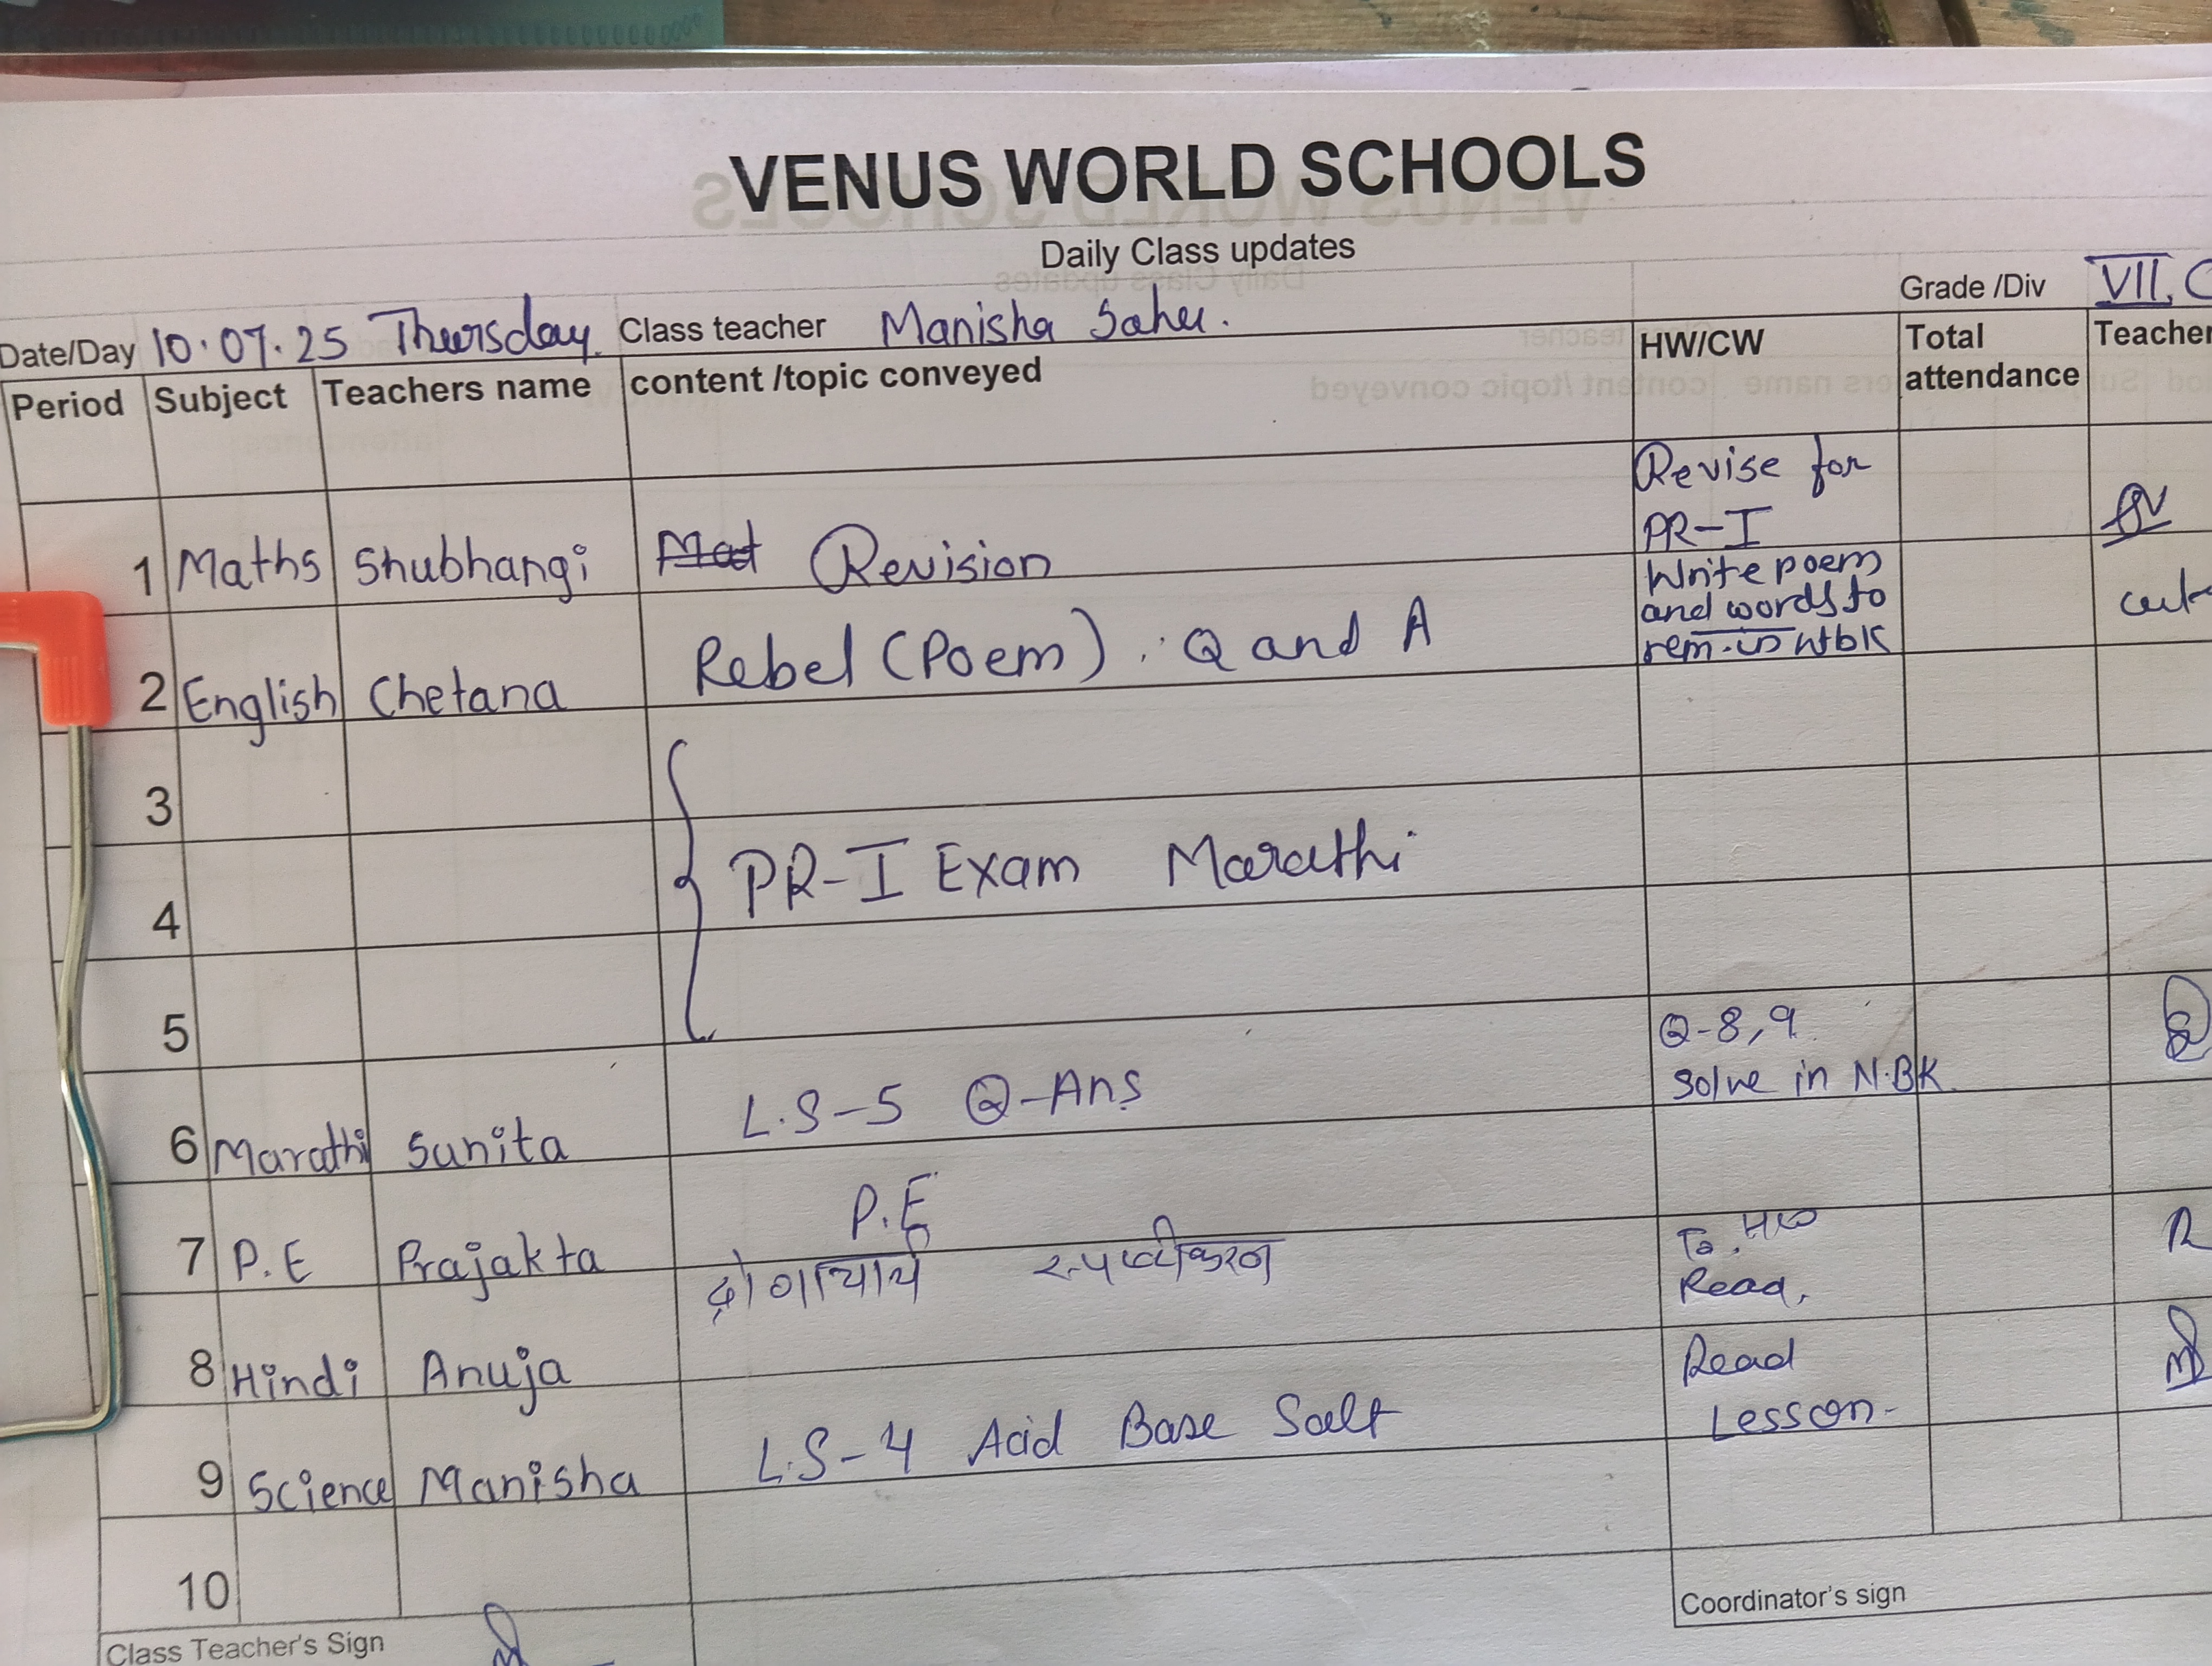 VENUS WORLD SCHOOLS
Daily Class updates
Grade /Div VII, C
Date/Day 10.07.25 Thursday. Class teacher Manisha Sahu.
Period Subject Teachers name content /topic conveyed HW/CW Total attendance Teacher
1 Maths Shubhangi Mat Revision Revise for
PR-I
2 English Chetana Rebel (Poem). Q and A Write poem
and words to
rem. in
3
4 PR-I Exam Marathi
5
6 Marathi Sunita L.S-5 Q-Ans Q-8,9
Solve in N.BK.
7 P.E Prajakta P.E
8 Hindi Anuja द्रोणाचार्य स्पष्टीकरण
Read,
9 Science Manisha L.S-4 Acid Base Salt Read
Lesson-
10
Class Teacher's Sign
Coordinator's sign